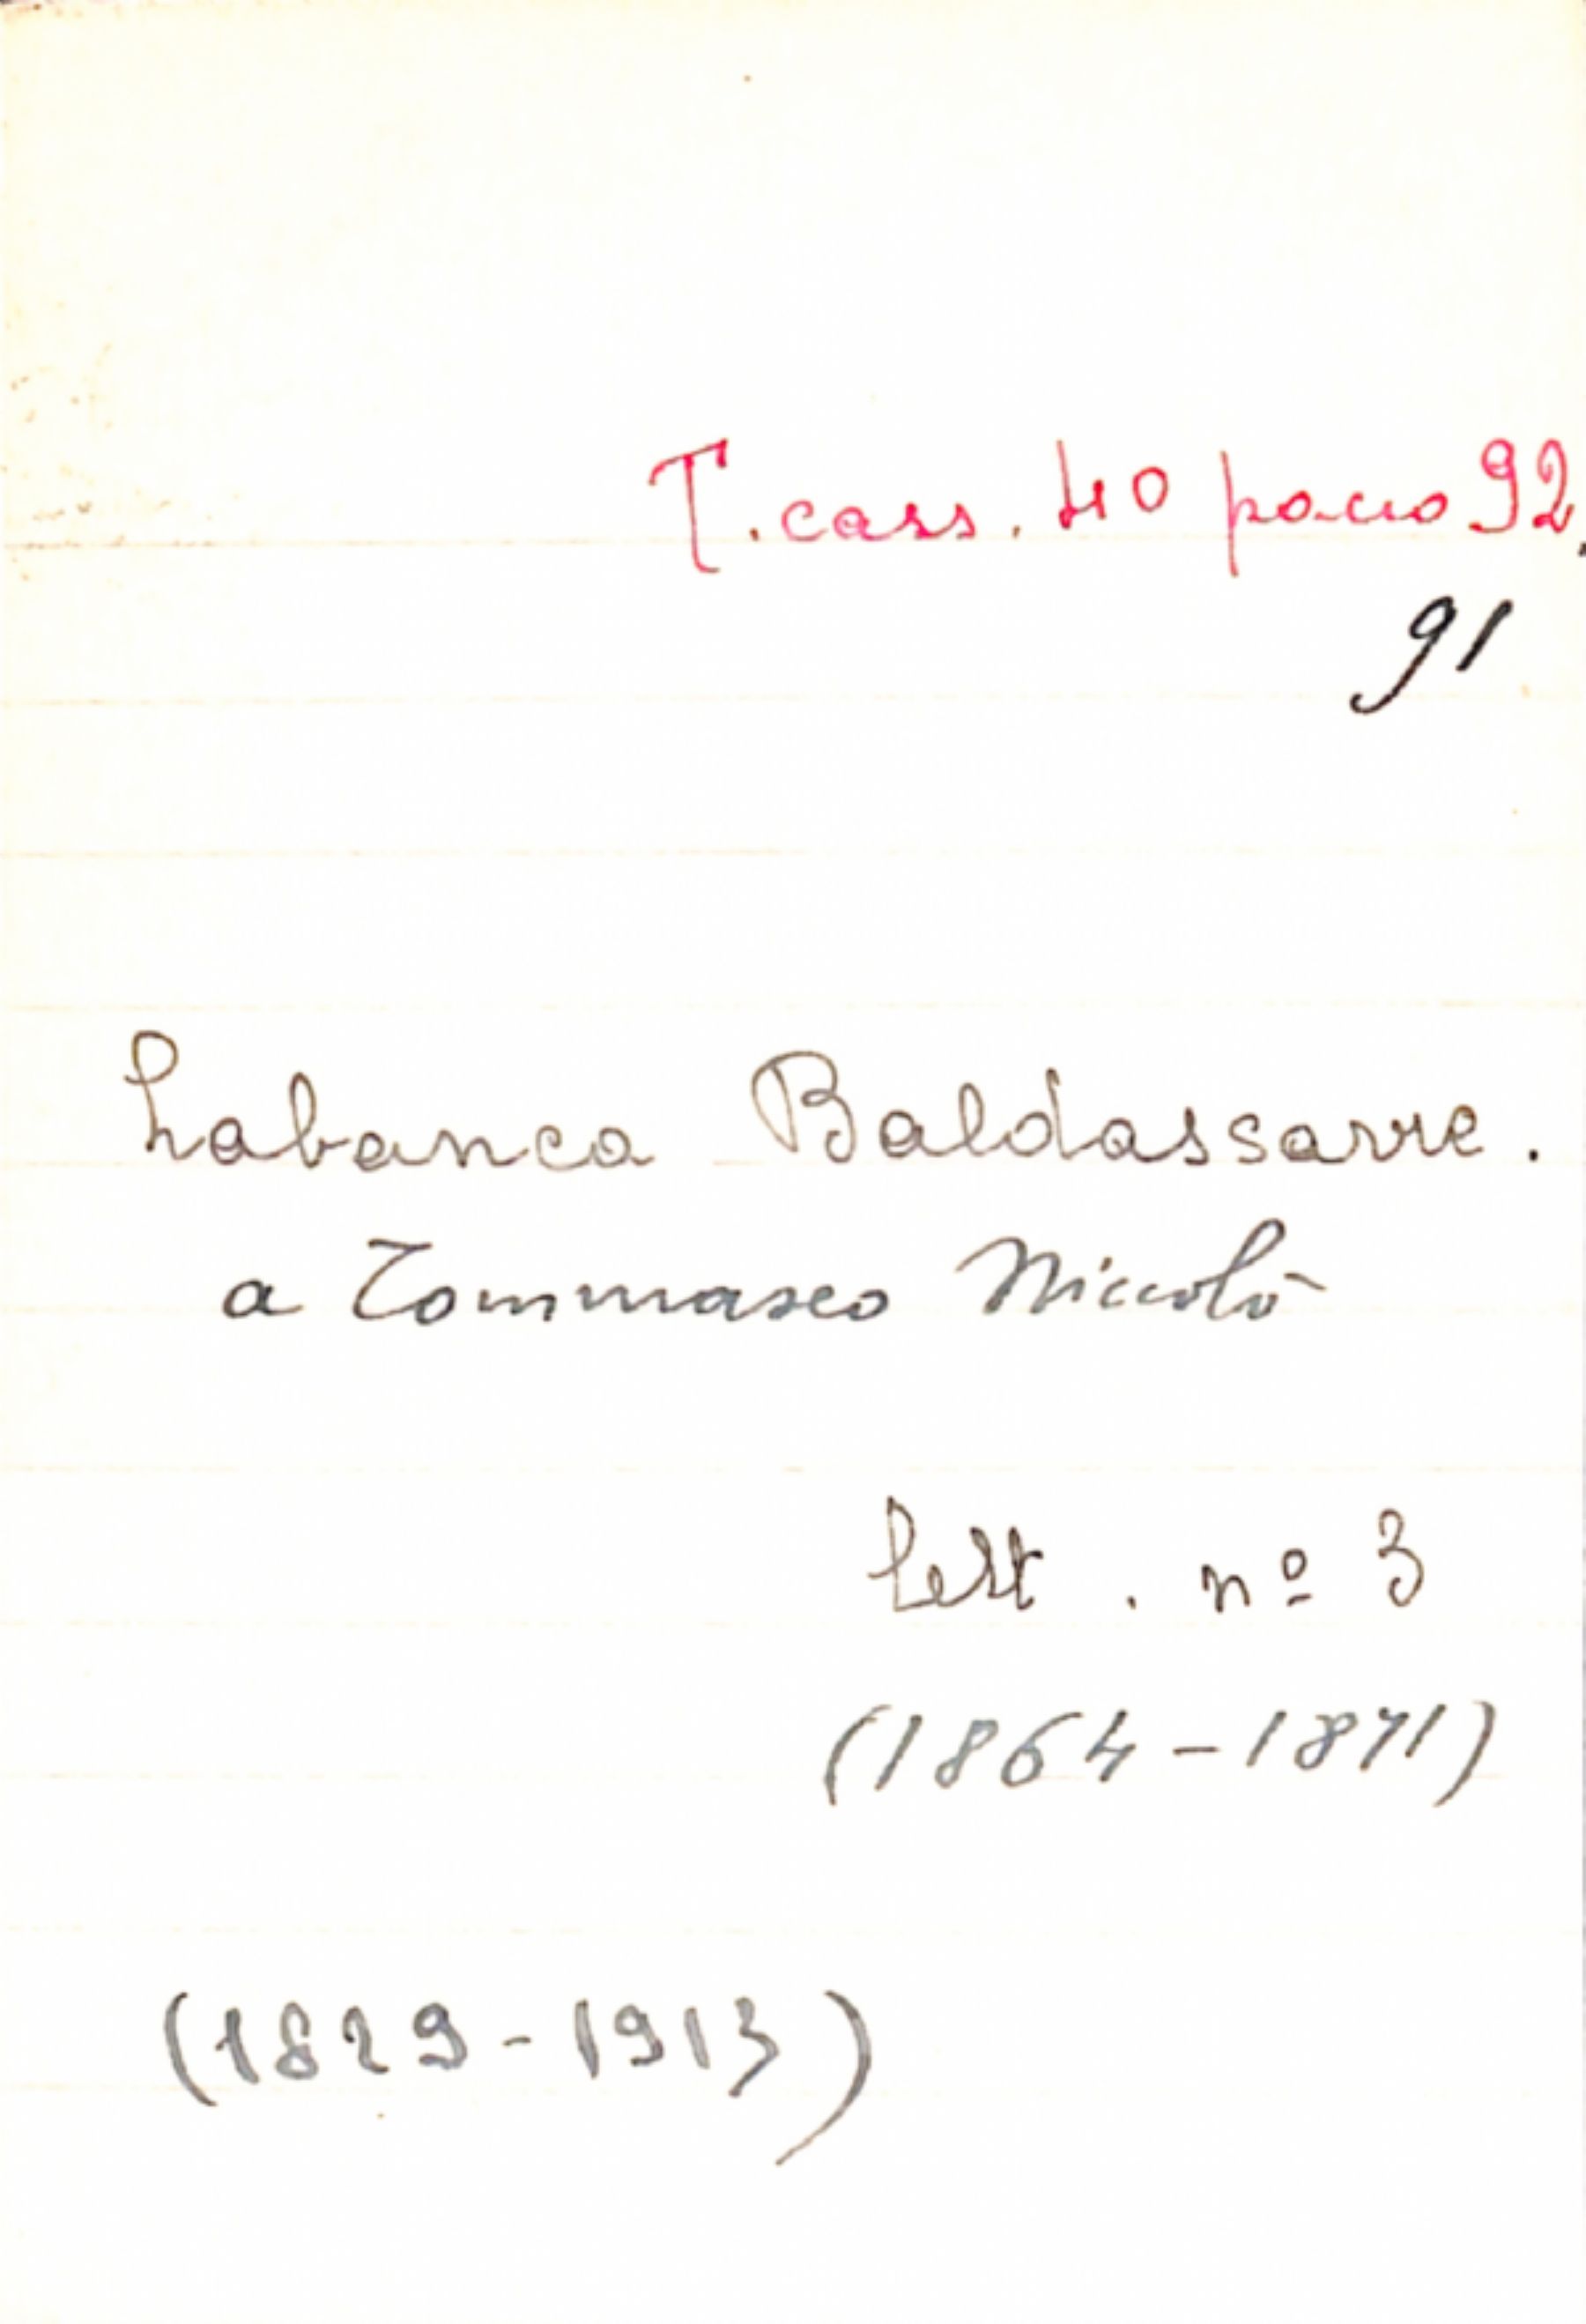 T. cass. 40 pacco 92.
91
Labanca Baldassarre.
a Tommaseo Niccolò
Lett. nº 3
(1864-1871)
(1829-1913)